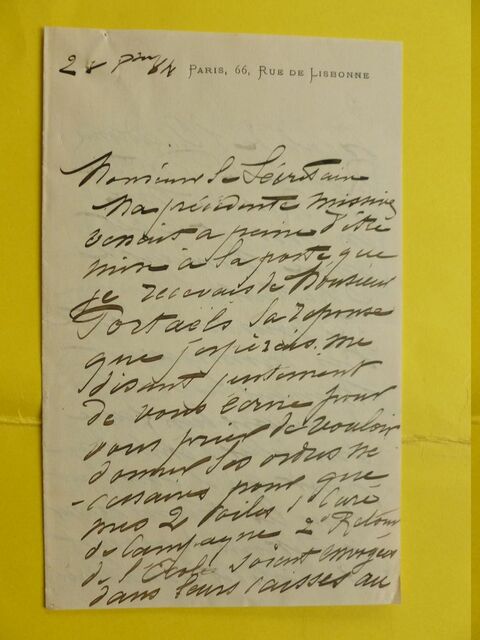 PARIS, 66, RUE DE LISBONNE
Monsieur le Sécrétaire
Ma précédente missive
venait a peine d'être
mise à la poste que
je recevais de Monsieur
Portaëls la reponse
que j'espérais, me
disant justement
de vous écrire pour
vous prier de vouloir
donner les ordres né
-cessaires pour que
mes 2 toiles 1° Curé
de Campagne 2° Retour
de l'École soient envoyées
dans leurs caisses au